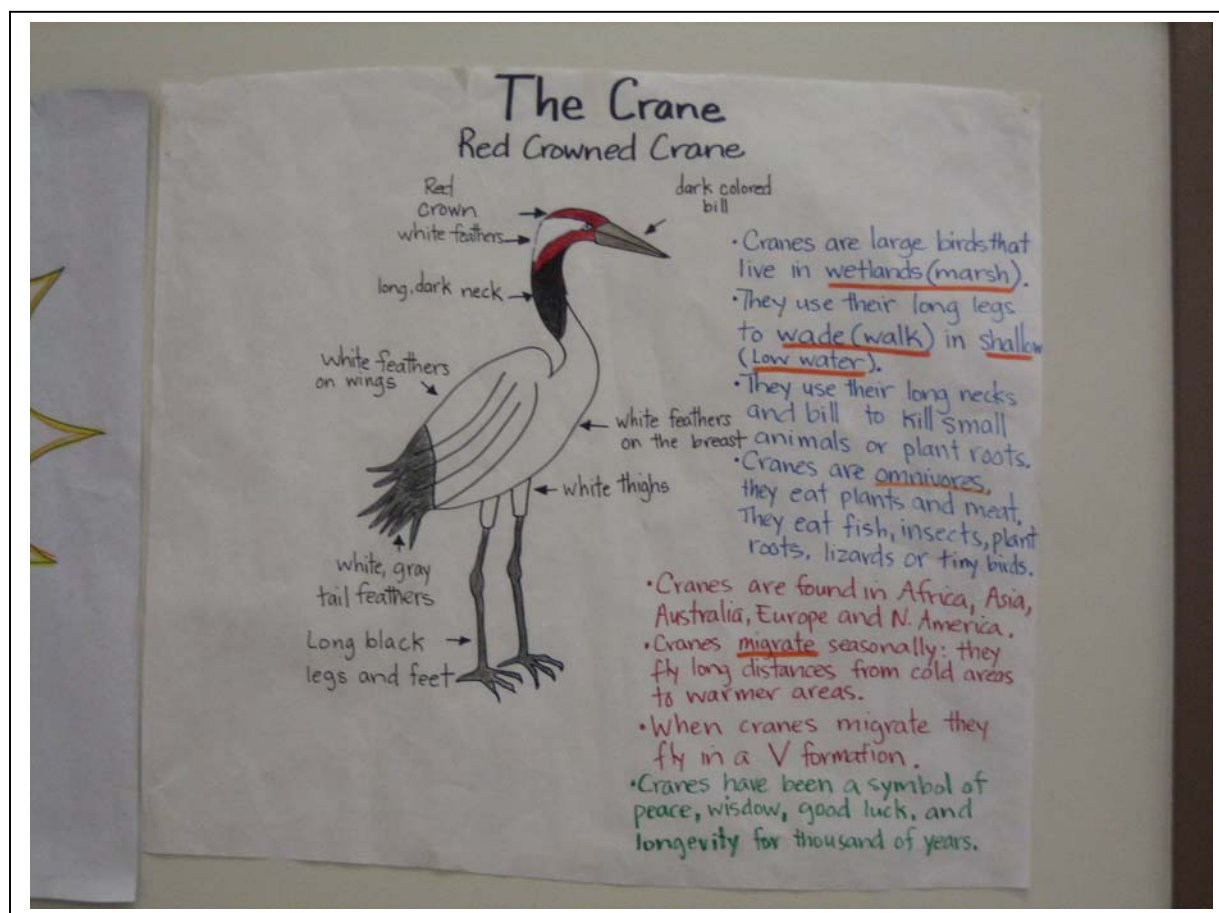 The Crane
Red Crowned Crane
Red
crown
white feathers
long, dark neck
white feathers
on wings
white, gray
tail feathers
Long black
legs and feet
dark colored
bill
white feathers
on the breast
white thighs
• Cranes are large birds that
live in wetlands (marsh).
• They use their long legs
to wade (walk) in shallow
(Low water).
• They use their long necks
and bill to kill small
animals or plant roots.
• Cranes are omnivores,
they eat plants and meat.
They eat fish, insects, plant
roots, lizards or tiny birds.
• Cranes are found in Africa, Asia,
Australia, Europe and N. America.
• Cranes migrate seasonally: they
fly long distances from cold areas
to warmer areas.
• When cranes migrate they
fly in a V formation.
• Cranes have been a symbol of
peace, wisdow, good luck, and
longevity for thousand of years.